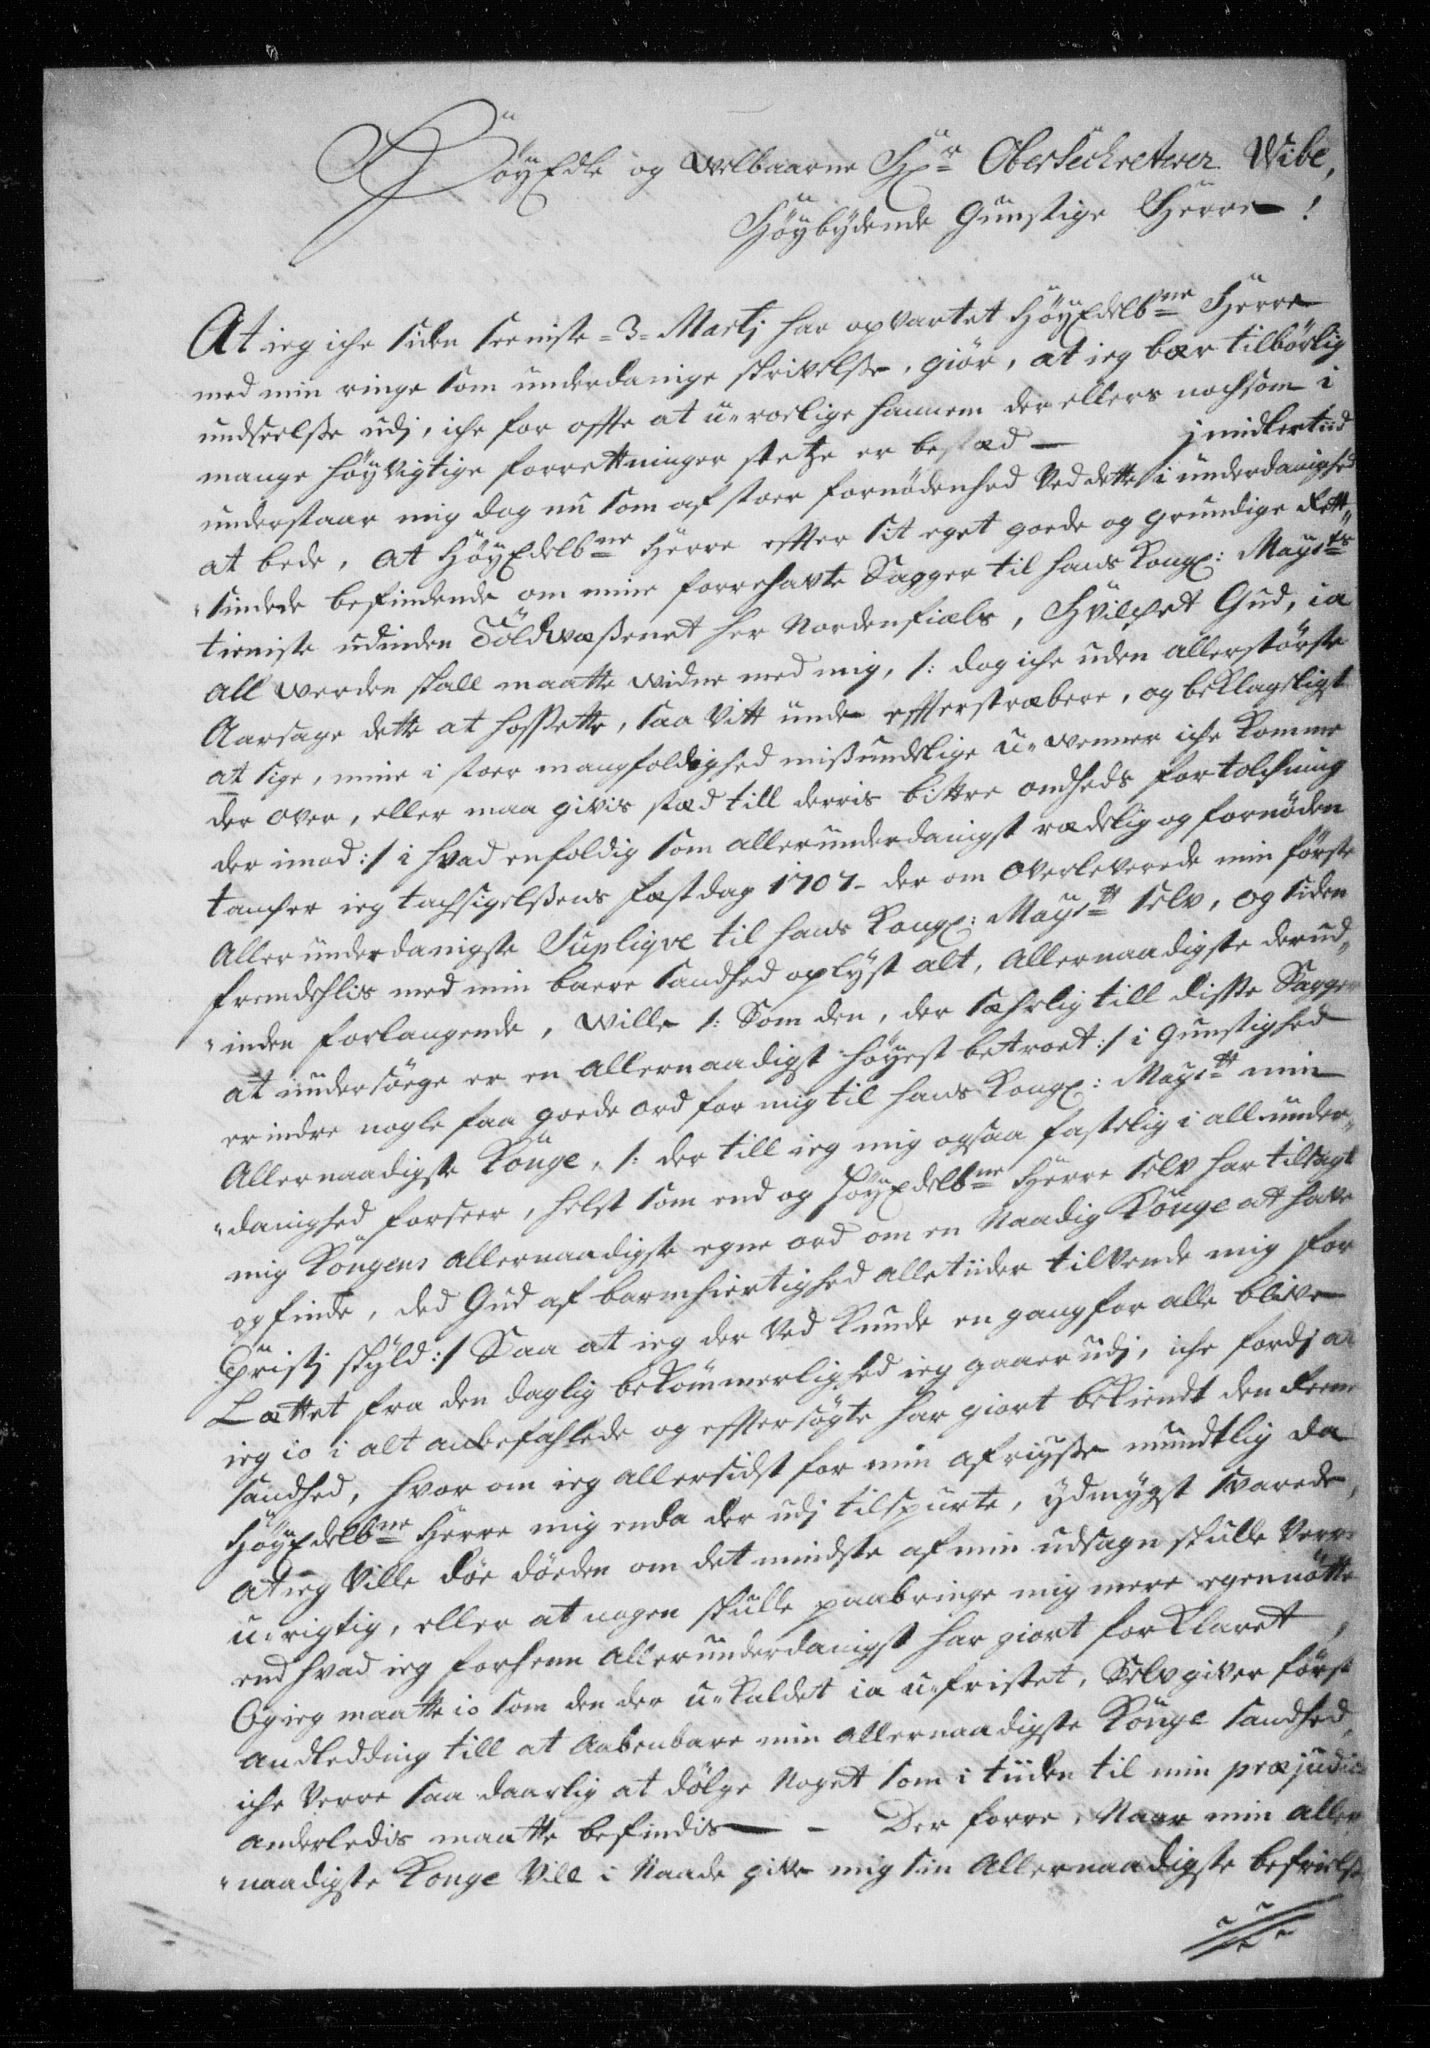 HöyEdle og Welbaarne Hr Obersechreterer Wibe,
Höybydende Gunstige Herre!
At ieg iche siden seeniste =3= Martj har opvartet HöyEdelbne Herre
med min ringe som underdanige skrivelsse, giör, at ieg bær tilbörlig
undseelsse udj, iche for offte at u=roelige hannem der ellers nochsom i
mange höyvigtige forrettninger stetze er bestæd — jmidlertiid
understaar mig dog nu som af stoer fornödenhed Ved dette i underdanighed
at bede, at HöyEdelbne Herre effter sit eget goede og grundige Rett=
=sindede befindende om mine forrehavte Sagger til hans Kongl: Mayts
tieniste udinden Toldwæßenet her Nordenfiæls, Hvilchet Gud, ia
all werden skall maatte widne med mig, /: dog iche uden allerstörste
Aarsage dette at hossette, saa Vitt unde effterstræbere, og beklagsligt
at sige, mine i stoer mangfoldighed mißundelige u=wenner iche komme
der over, eller maa givis stæd till derris bittre ondheds fortolchning
der imod :/ i hvad enfoldig som allerunderdanigst rædelig og fornöden
tancher ieg tachsigelßens fæstdag 1707 der om overleverede min förste
Allerunderdanigste Supliqve til hans Kongl: Maytt selv, og siden
fremdehlis med min baere sandhed oplyst alt, Allernaadigste derud=
=inden forlangende, wille /: Som den, der sæhrlig till disse Sagger
at undersöge er en allernaadigst höyest betroet :/ i Gunstighed
erindre nogle faa goede ord for mig til hans Kongl: Maytt min
Allernaadigste Konge, /: der till ieg mig ogsaa fastelig i all under=
=danighed forseer, helst som end og HöyEdelbne Herre selv har tilsagt
mig Kongens allernaadigste egne ord om en Naadig Konge at have
og finde, ded Gud af barmhiertighed alletiider tilvende mig for
Christj skyld :/ Saa at ieg der Ved kunde en gang for alle blive
Lættet fra den daglig bekömmerlighed ieg gaaer udj, iche fordj at
ieg io i alt anbefahlede og efftersögte har giort bekiendt den reene
sandhed, hvor om ieg allersidst for min afreyse mundtlig da
HöyEdelbne Herre mig enda der udj tilspurte, ydmygst svarede,
at ieg Ville döe döeden om det mindste af min udsagn skulle Verre
u=rigtig, eller at nogen skulle paabringe mig mere egennötte
end hvad ieg forhenn allerunderdanigst har giort forklaret,
Og ieg maatte io som den der u=kaldet ia u=fristet, Selvgiver först
andledding till at Aabenbare min allernaadigste Konge sandhed,
iche Verre saa daarlig at dölge Noget som i tiiden til min præjudice
anderledis maatte befindis — – Der forre, Naar min aller
=naadigste Konge Vill i Naade give mig sin Allernaadigste befrielse